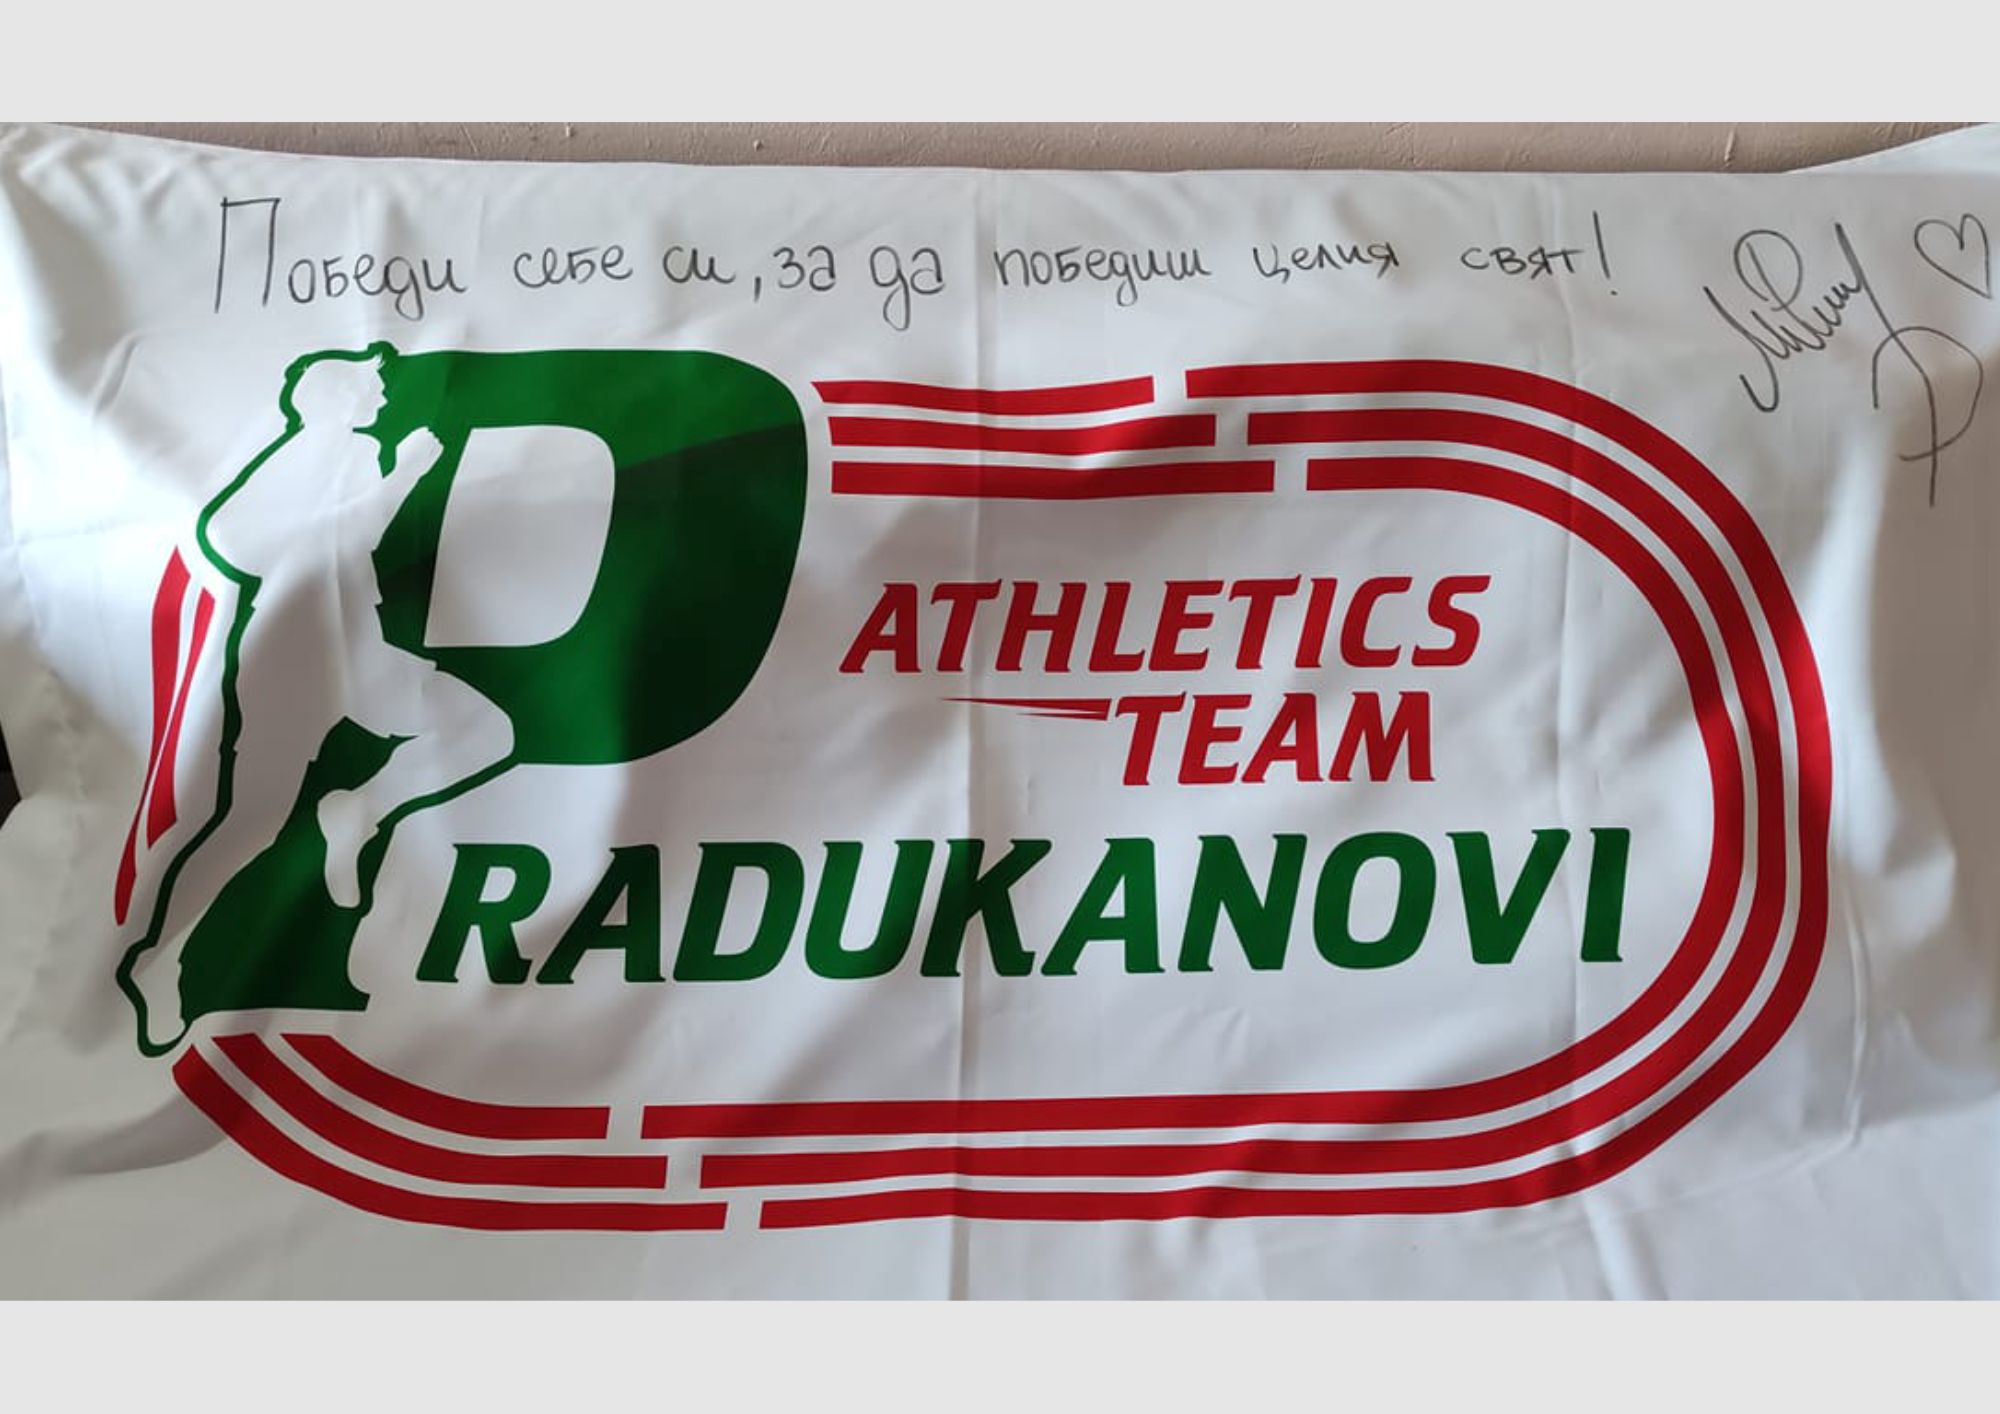 Победи себе си, за да победиш целия свят!
ATHLETICS
TEAM
RADUKANOVI